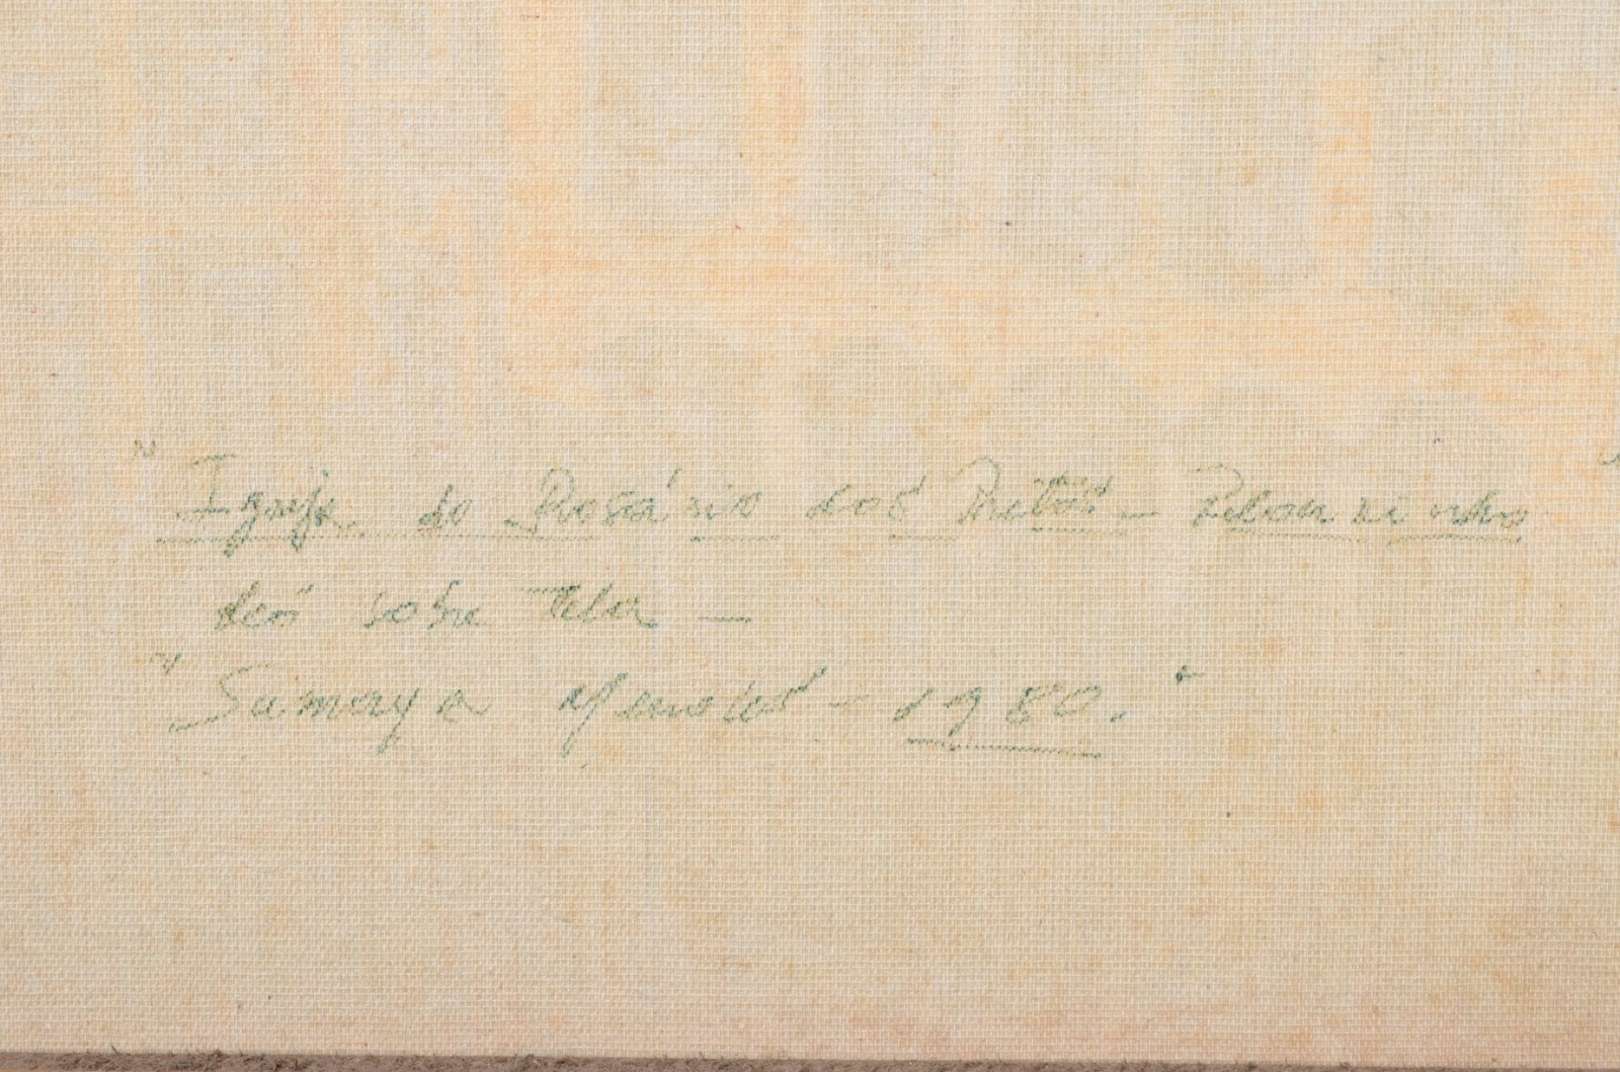 "Igreja do Rosário dos Pretos - Pelourinho"
óleo sobre Tela -
"Sumaya - 1980."